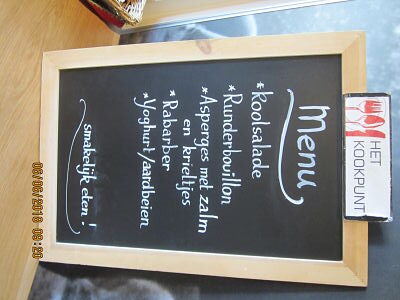 HET
KOOKPUNT
Menu
*Koolsalade
*Runderbouillon
*Asperges met zalm
en krieltjes
*Rabarber
*Yoghurt/aardbeien
smakelijk eten!
06/06/2010 09:20